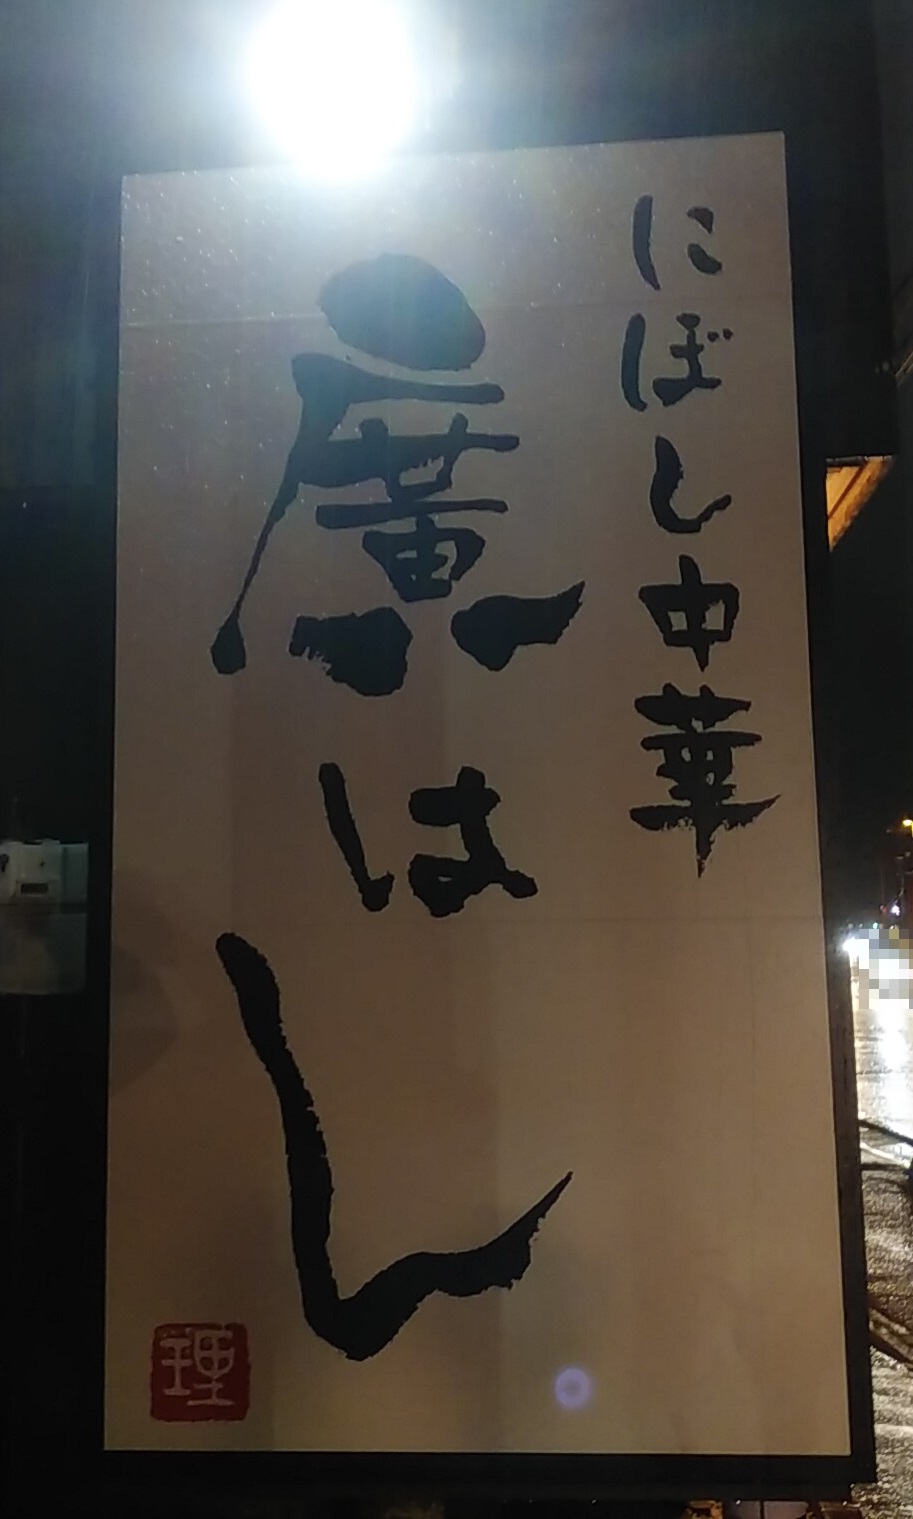 にぼし中華
廣はし
理